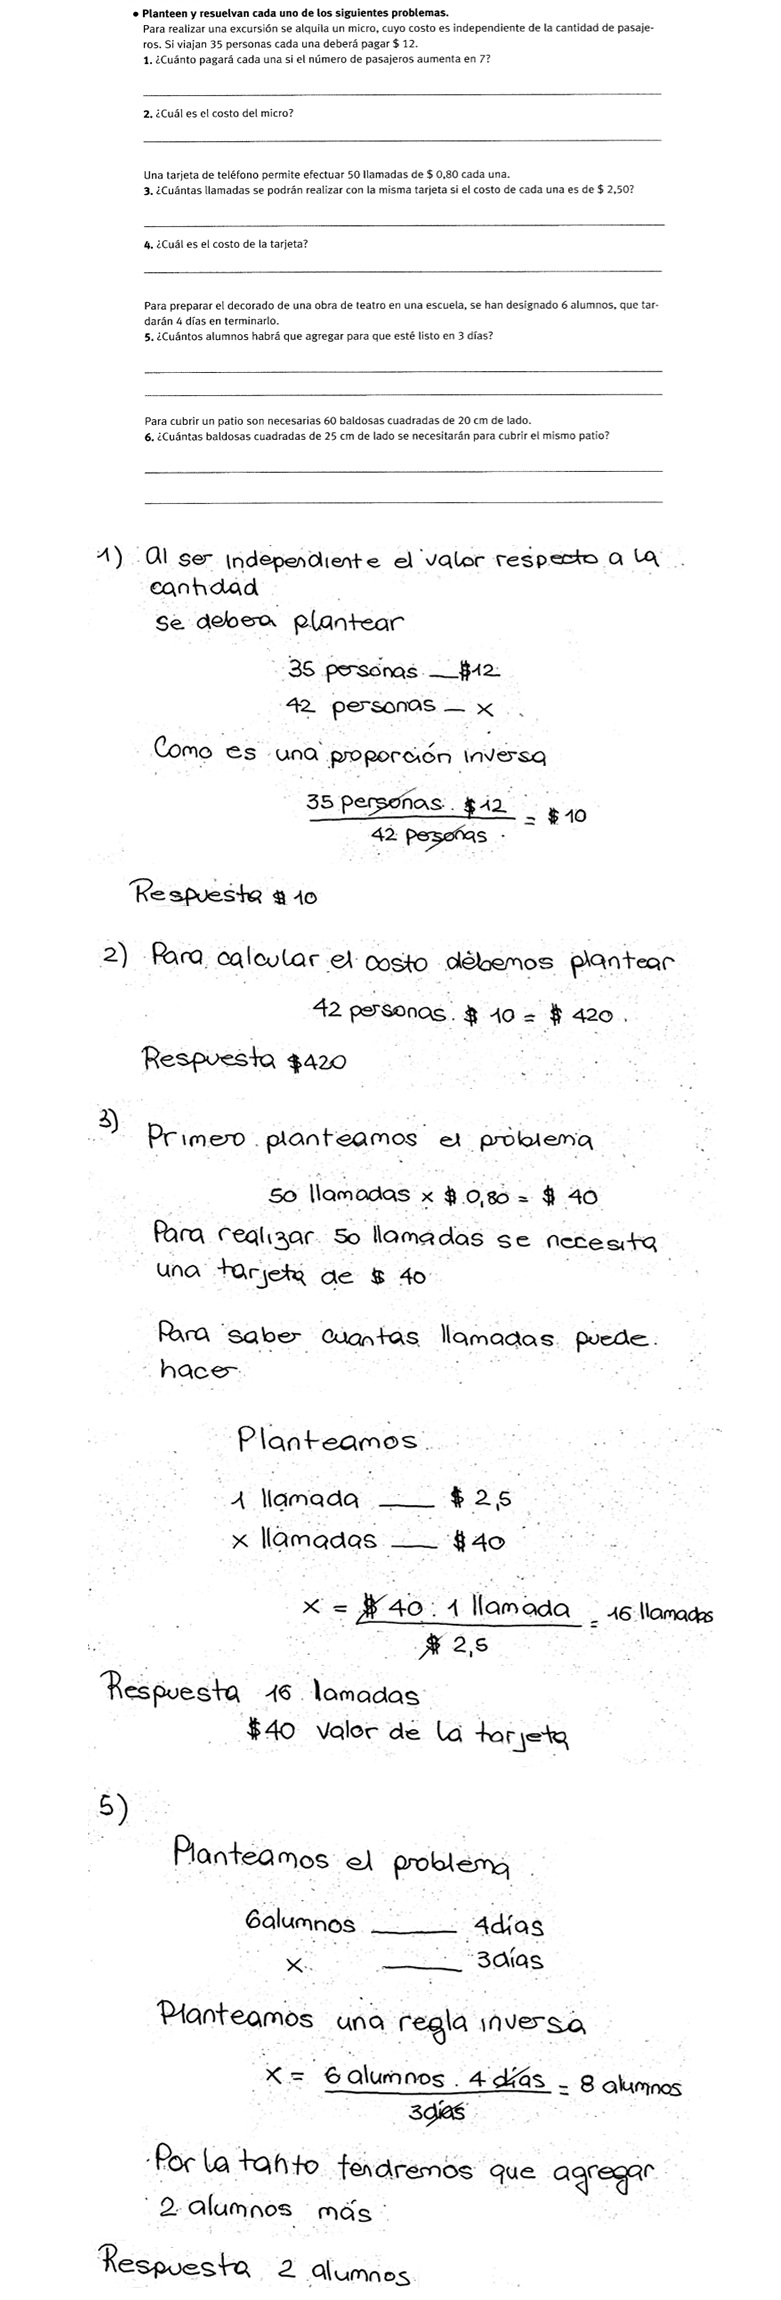 • Planteen y resuelvan cada uno de los siguientes problemas.
Para realizar una excursión se alquila un micro, cuyo costo es independiente de la cantidad de pasaje-
ros. Si viajan 35 personas cada una deberá pagar $ 12.
1. ¿Cuánto pagará cada una si el número de pasajeros aumenta en 7?
2. ¿Cuál es el costo del micro?
Una tarjeta de teléfono permite efectuar 50 llamadas de $ 0,80 cada una.
3. ¿Cuántas llamadas se podrán realizar con la misma tarjeta si el costo de cada una es de $ 2,50?
4. ¿Cuál es el costo de la tarjeta?
Para preparar el decorado de una obra de teatro en una escuela, se han designado 6 alumnos, que tar-
darán 4 días en terminarlo.
5. ¿Cuántos alumnos habrá que agregar para que esté listo en 3 días?
Para cubrir un patio son necesarias 60 baldosas cuadradas de 20 cm de lado.
6. ¿Cuántas baldosas cuadradas de 25 cm de lado se necesitarán para cubrir el mismo patio?
1) al ser independiente el valor respecto a la
cantidad
se debera plantear
35 personas __ $12
42 personas _ x
Como es una proporción inversa
35 personas . $12
= $ 10
42 pesonas
Respuesta $ 10
2) Para calcular el costo debemos plantear
42 personas . $ 10 = $ 420
Respuesta $420
3) Primero planteamos el problema
50 llamadas x $ 0,80 = $ 40
Para realizar 50 llamadas se necesita
una tarjeta de $ 40
Para saber cuantas llamadas puede
hacer
Planteamos
1 llamada ___ $ 2,5
x llamadas ___ $40
x = $ 40 . 1 llamada = 16 llamadas
$ 2,5
Respuesta 16 lamadas
$40 valor de la tarjeta
5)
Planteamos el problema
6alumnos ____ 4días
x ____ 3días
Planteamos una regla inversa
x = 6 alumnos . 4 días = 8 alumnos
3días
Por la tanto tendremos que agregar
2 alumnos más
Respuesta 2 alumnos